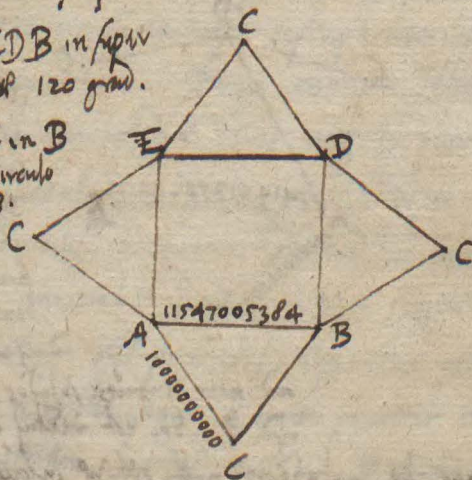 C
DB in
120 grad.
E D
in B
circulo
C C
11547005384
A B
10000000000
C